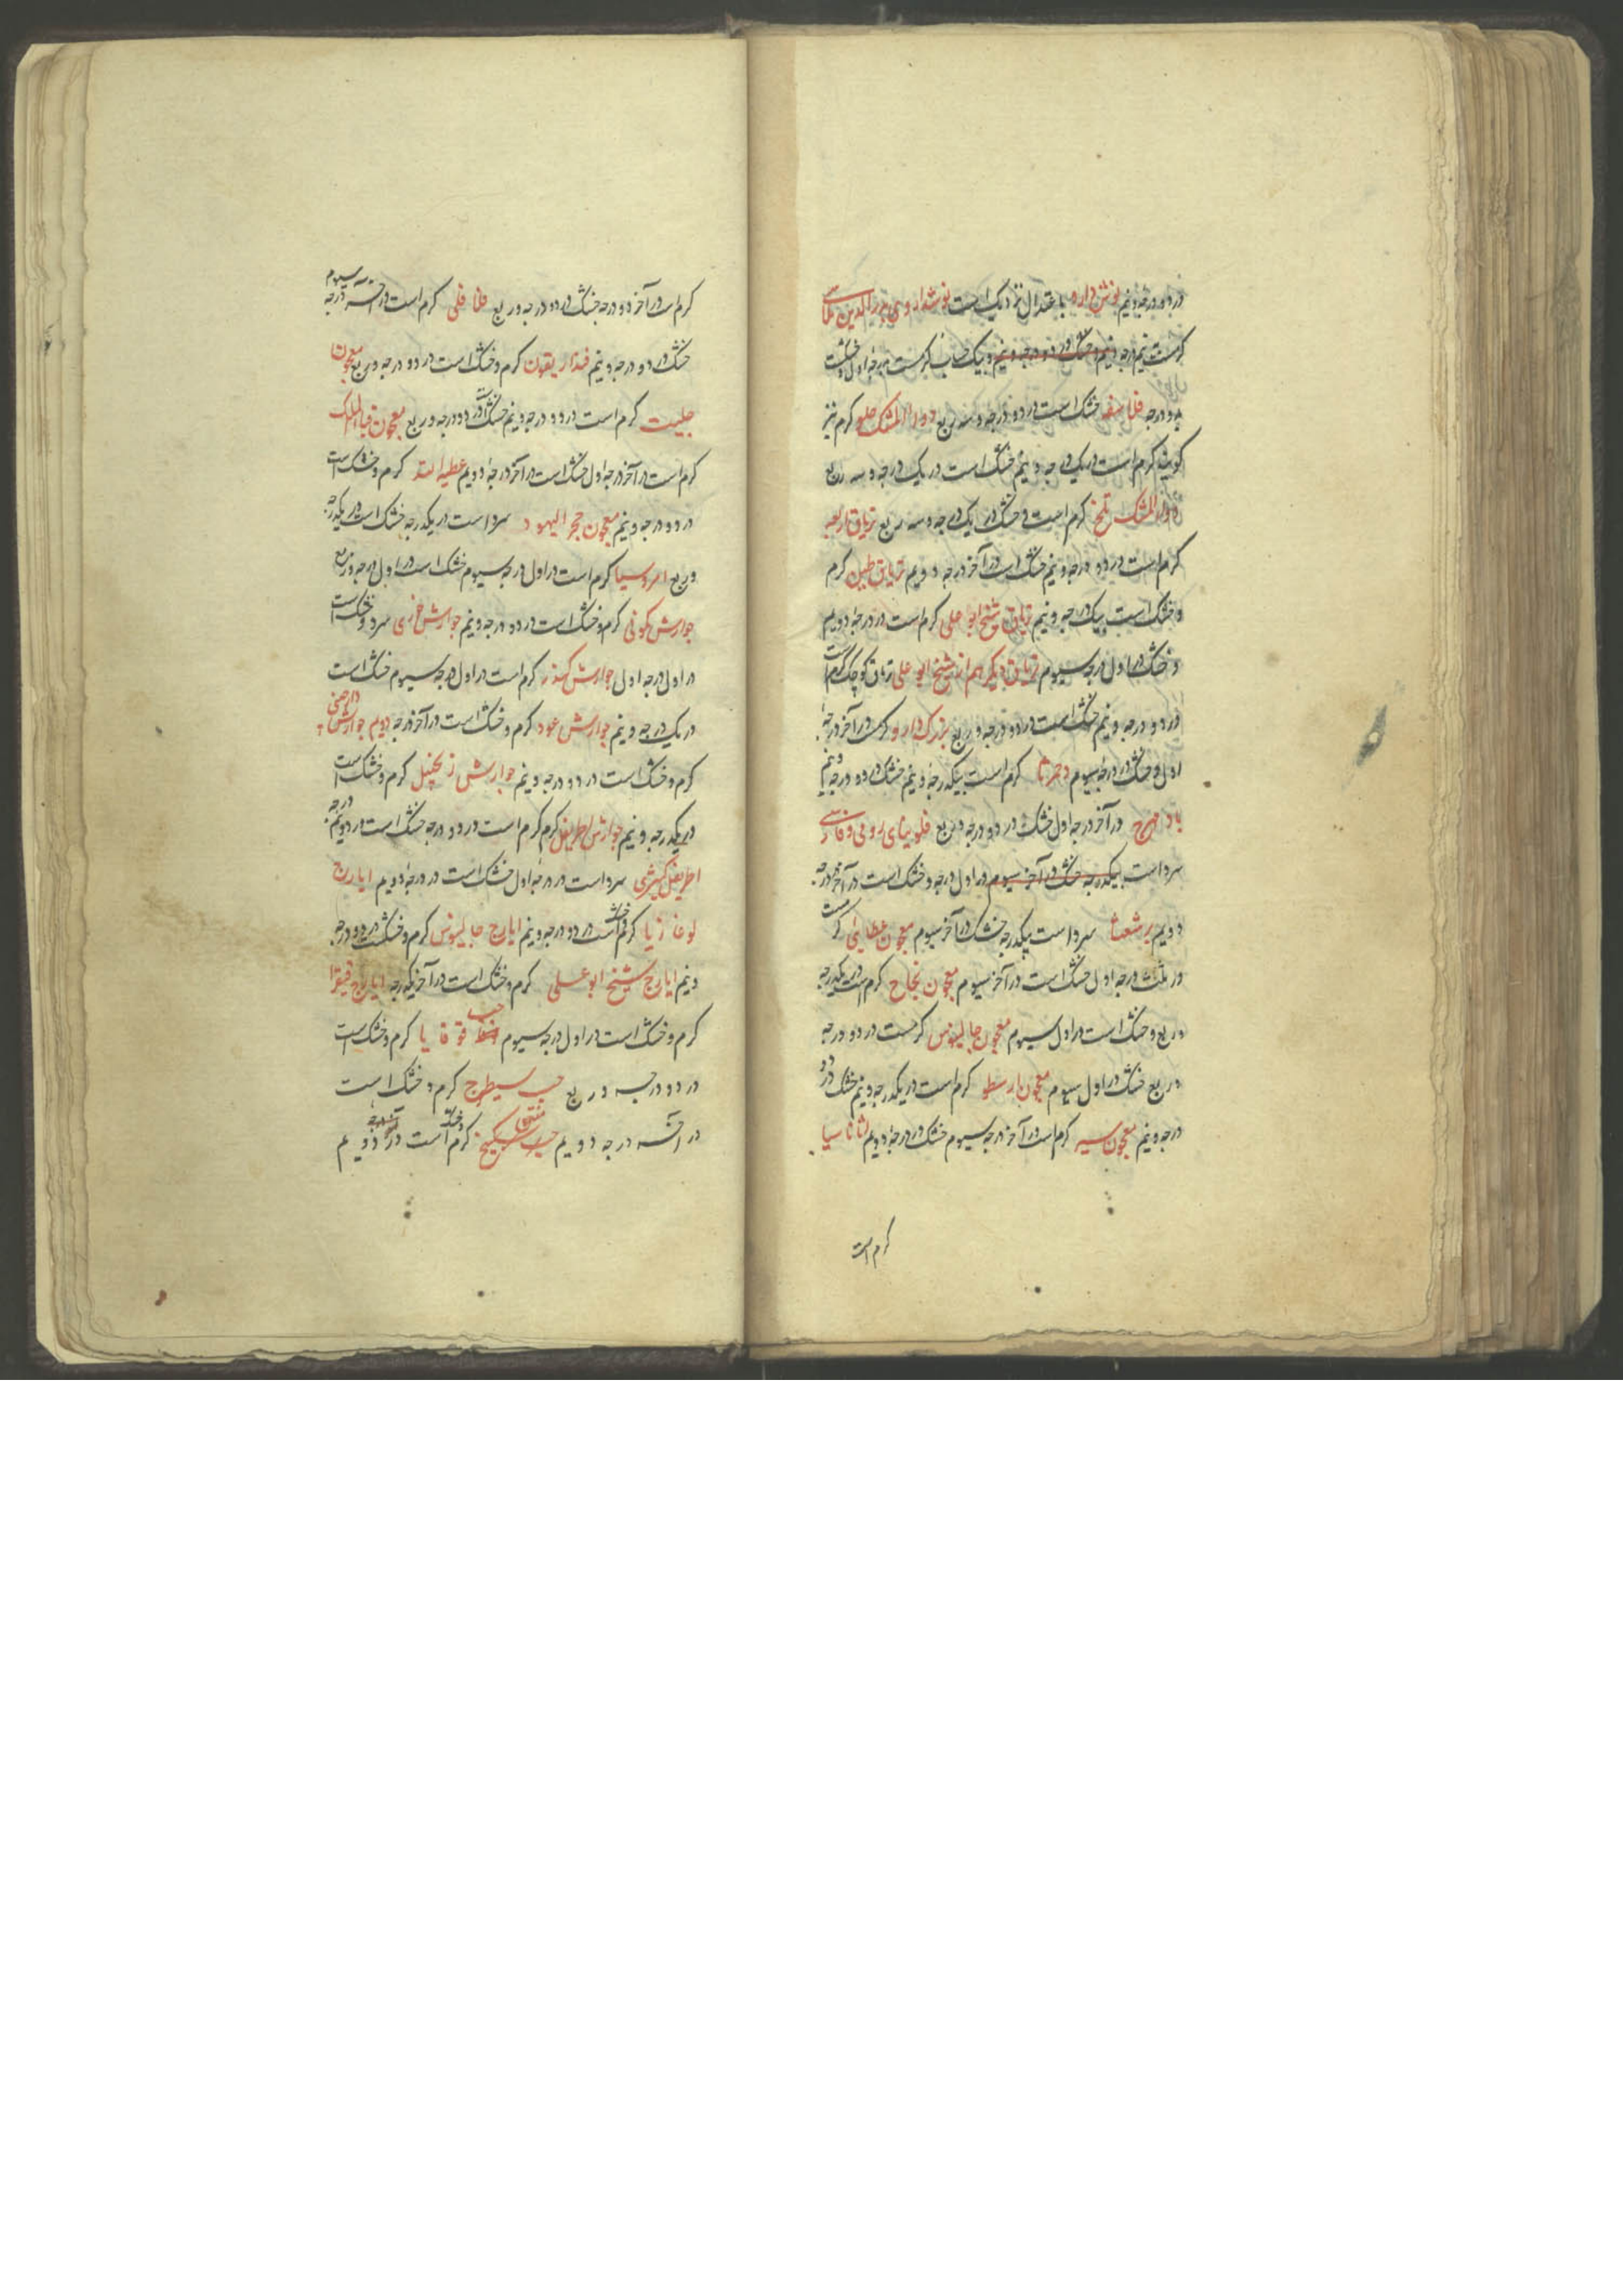 در دو درجه و نیم نوش دارو باعتدال نزدیک است نوشداروی بدرالدین
کرمست نیم درجه و نیم و خشک در دو درجه و نیم و بیک حساب کرمست بدرجه اول و خشک
بدو درجه فلاسفه خشک است در دو درجه و سه ربع دواء المشک حلو کرم نیز
کویند کرم است در یک درجه و نیم خشک است در یک درجه و سه ربع
دواء المشک تلخ کرم است و خشک در یک درجه و سه ربع تریاق اربعه
کرم است در دو درجه و نیم خشک است در آخر درجه دویم تریاق طین کرم
و خشک است بیک درجه و نیم تریاق شیخ ابو علی کرم است در درجه دویم
و خشک در اول درجه سیوم تریاق دیکر هم از شیخ ابو علی تریاق کوچک کرم است
در دو درجه و نیم خشک است در دو درجه و ربع بزرک دارو کرمست در آخر درجه
اول و خشک در درجه سیوم دحمرثا کرم است بیکدرجه و نیم خشک در دو درجه و نیم
باد مهرج در آخر درجه اول خشک در دو درجه و ربع فلونیای رومی و فارسی
سرد است بیکدرجه خشک در آخر سیوم در اول درجه و خشک است در آخر درجه
دویم برشعثا سرد است بیکدرجه خشک در آخر سیوم معجون عطایی کرمست
در ثلث درجه اول خشک است در آخر سیوم معجون نجاح کرم است در یکدرجه
و ربع و خشک است در اول سیوم معجون جالینوس کرمست در دو درجه
و ربع خشک در اول سیوم معجون بارسطو کرم است در یکدرجه و نیم خشک در دو
درجه و نیم معجون سیر کرم است در آخر درجه سیوم خشک در درجه دویم اثاناسیا
کرم است
کرم است در آخر دو درجه خشک در دو درجه و ربع فلافلی کرم است در آخر درجه سیوم
خشک در دو درجه و نیم فنداریقون کرم و خشک است در دو درجه و ربع معجون
حلتیت کرم است در دو درجه و نیم خشک است در دو درجه و ربع معجون قباد الملک
کرم است در آخر درجه اول خشک است در آخر درجه دویم عطیه الله کرم و خشک است
در دو درجه و نیم معجون حجر الیهود سرد است در یکدرجه خشک است در یکدرجه
و ربع امروسیا کرم است در اول درجه سیوم خشک است در اول درجه و ربع
جوارش کمونی کرم و خشک است در دو درجه و نیم جوارش خوزی سرد و خشک است
در اول درجه اول جوارش کندر کرم است در اول درجه سیوم خشک است
در یک درجه و نیم جوارش عود کرم و خشک است در آخر درجه دویم جوارش دارچینی
کرم و خشک است در دو درجه و نیم جوارش زنجبیل کرم و خشک است
در یکدرجه و نیم جوارش اطریفل کرم کرم است در دو درجه خشک است در دو درجه و نیم
اطریفل کشنیزی سرد است در درجه اول خشک است در درجه دویم ایارج
لوغاذیا کرم و خشک است در دو درجه و نیم ایارج جالینوس کرم و خشکست در دو درجه
و نیم ایارج شیخ ابو علی کرم و خشک است در آخر یکدرجه ایارج فیقرا
کرم و خشک است در اول درجه سیوم حب قوقایا کرم و خشک است
در دو درجه و ربع حب سیطرج کرم و خشک است
در آخر درجه دویم حب سکبینج کرم و خشک است در آخر درجه دویم